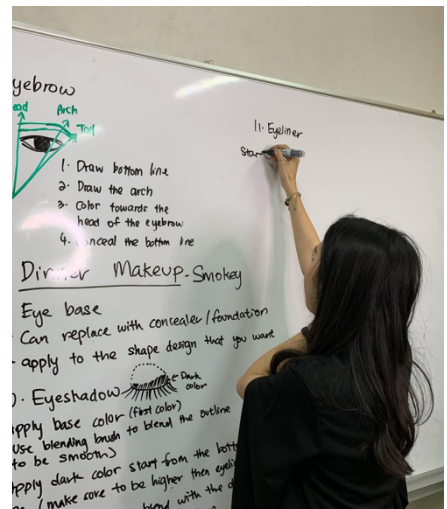 yebrow
ead
Arch
Tail
1. Draw bottom line
2. Draw the arch
3. Color towards the
head of the eyebrow
4. conceal the bottom line
Dinner Makeup - Smokey
Eye base
Can replace with concealer/foundation
apply to the shape design that you want
). Eyeshadow
Dark
color
pply base color (first color)
use blending brush to blend the outline
to be smooth)
pply dark color start from the bott
(make sure to be higher then eyeli
blend with the d
11. Eyeliner
Star